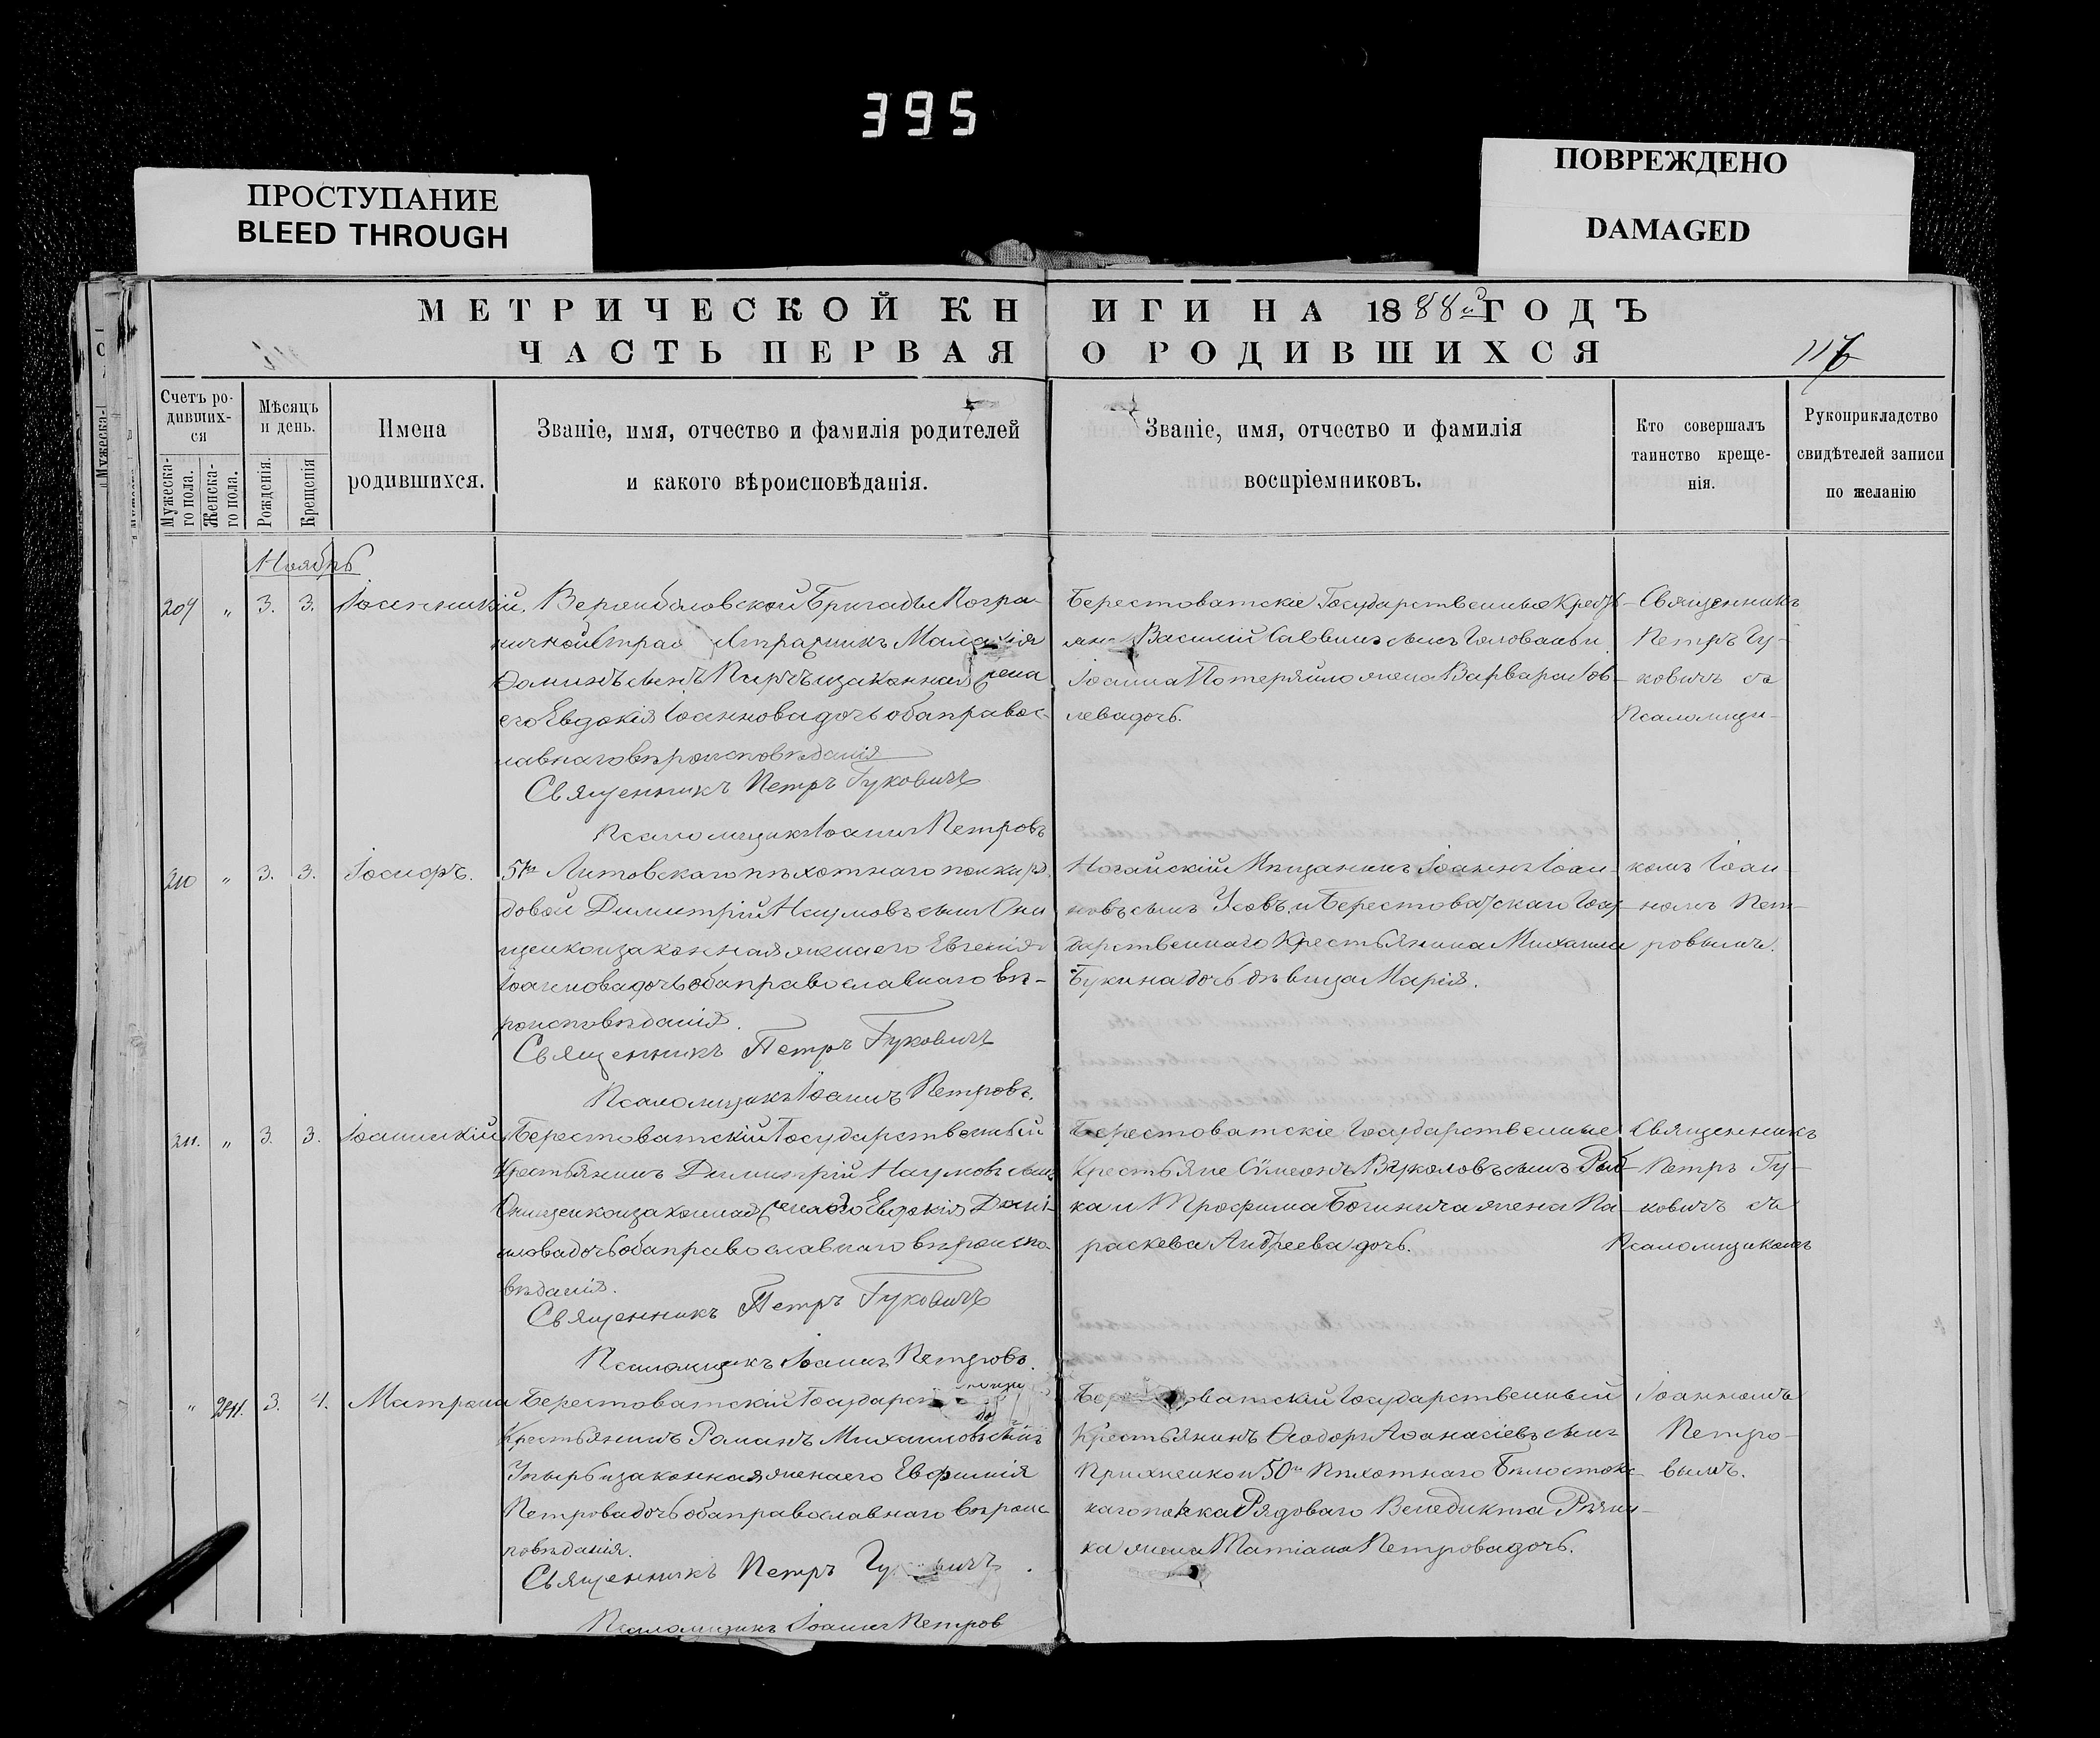 395
ПРОСТУПАНИЕ
BLEED THROUGH
ПОВРЕЖДЕНО
DAMAGED
МЕТРИЧЕСКОЙ КНИГИ НА 1888й ГОДЪ
ЧАСТЬ ПЕРВАЯ О РОДИВШИХСЯ
117
Счетъ родивших-
ся
Мужеска-
го пола.
Женска-
го пола.
Мѣсяцъ
и день.
Рожденія.
Крещенія
Имена
родившихся.
Званіе, имя, отчество и фамилія родителей
и какого вѣроисповѣданія.
Званіе, имя, отчество и фамилія
воспріемниковъ.
Кто совершалъ
таинство креще-
нія.
Рукоприкладство
свидѣтелей записи
по желанію
Ноябрь
209 „ 3. 3.
Вержболовской Бригады Погра-
ничной Страж Стражникъ Малахія
сынъ и законная жена
его Евдокія Іоаннова дочь оба правос-
лавнаго вѣроисповѣданія
Священникъ Петръ Гуковичъ
Псаломщикъ Іоаннъ Петровъ
Берестоватскіе Государственные Кресть-
яне Василій Саввинъ сынъ Головань и
Іоанна Потеряйло жена Варвара Іов-
лева дочь.
Священникъ
Петръ Гу-
ковичъ съ
Псаломщи-
210 „ 3. 3. Іосифъ.
51го Литовскаго пѣхотнаго полка ря-
довой Димитрій Наумовъ сынъ Они-
щенко и законная жена его Евгенія
Іоаннова дочь оба православнаго вѣ-
роисповѣданія.
Священникъ Петръ Гуковичъ
Псаломщикъ Іоаннъ Петровъ.
Ногайскій Мѣщанинъ Іоаннъ Іоан-
новъ сынъ Усовъ и Берестоватскаго Госу-
дарственнаго Крестьянина Михаила
Букина дочь дѣвица Марія.
комъ Іоан-
номъ Пет-
ровымъ.
211. „ 3. 3. Іоанникій
Берестоватскій Государственный
Крестьянинъ Димитрій Наумовъ сынъ
Онищенко и законная жена его Евдокія Дані-
илова дочь оба православнаго вѣроиспо-
вѣданія.
Священникъ Петръ Гуковичъ
Псаломщикъ Іоаннъ Петровъ.
Берестоватскіе Государственные
Крестьяне Сѵмеонъ Вуколовъ сынъ Рыб-
ка и Трофима Богинича жена Па-
раскева Андреева дочь.
Священникъ
Петръ Гу-
ковичъ съ
Псаломщикомъ
„ 3. 4. Матрона
Берестоватскій Государст
Крестьянинъ Романъ Михаиловъ сынъ
Упырь и законная жена его Евфимія
Петрова дочь оба православнаго вѣроис-
повѣданія.
Священникъ Петръ
Псаломщикъ Іоаннъ Петров
Берестоватскій Государственный
Крестьянинъ Ѳеодоръ Аѳанасіевъ сынъ
Прихненко и 50го Пѣхотнаго Бѣлосток-
каго полка Рядоваго Венедикта Рѣзни-
ка жена Татіана Петрова дочь.
Іоанномъ
Петро-
вымъ.